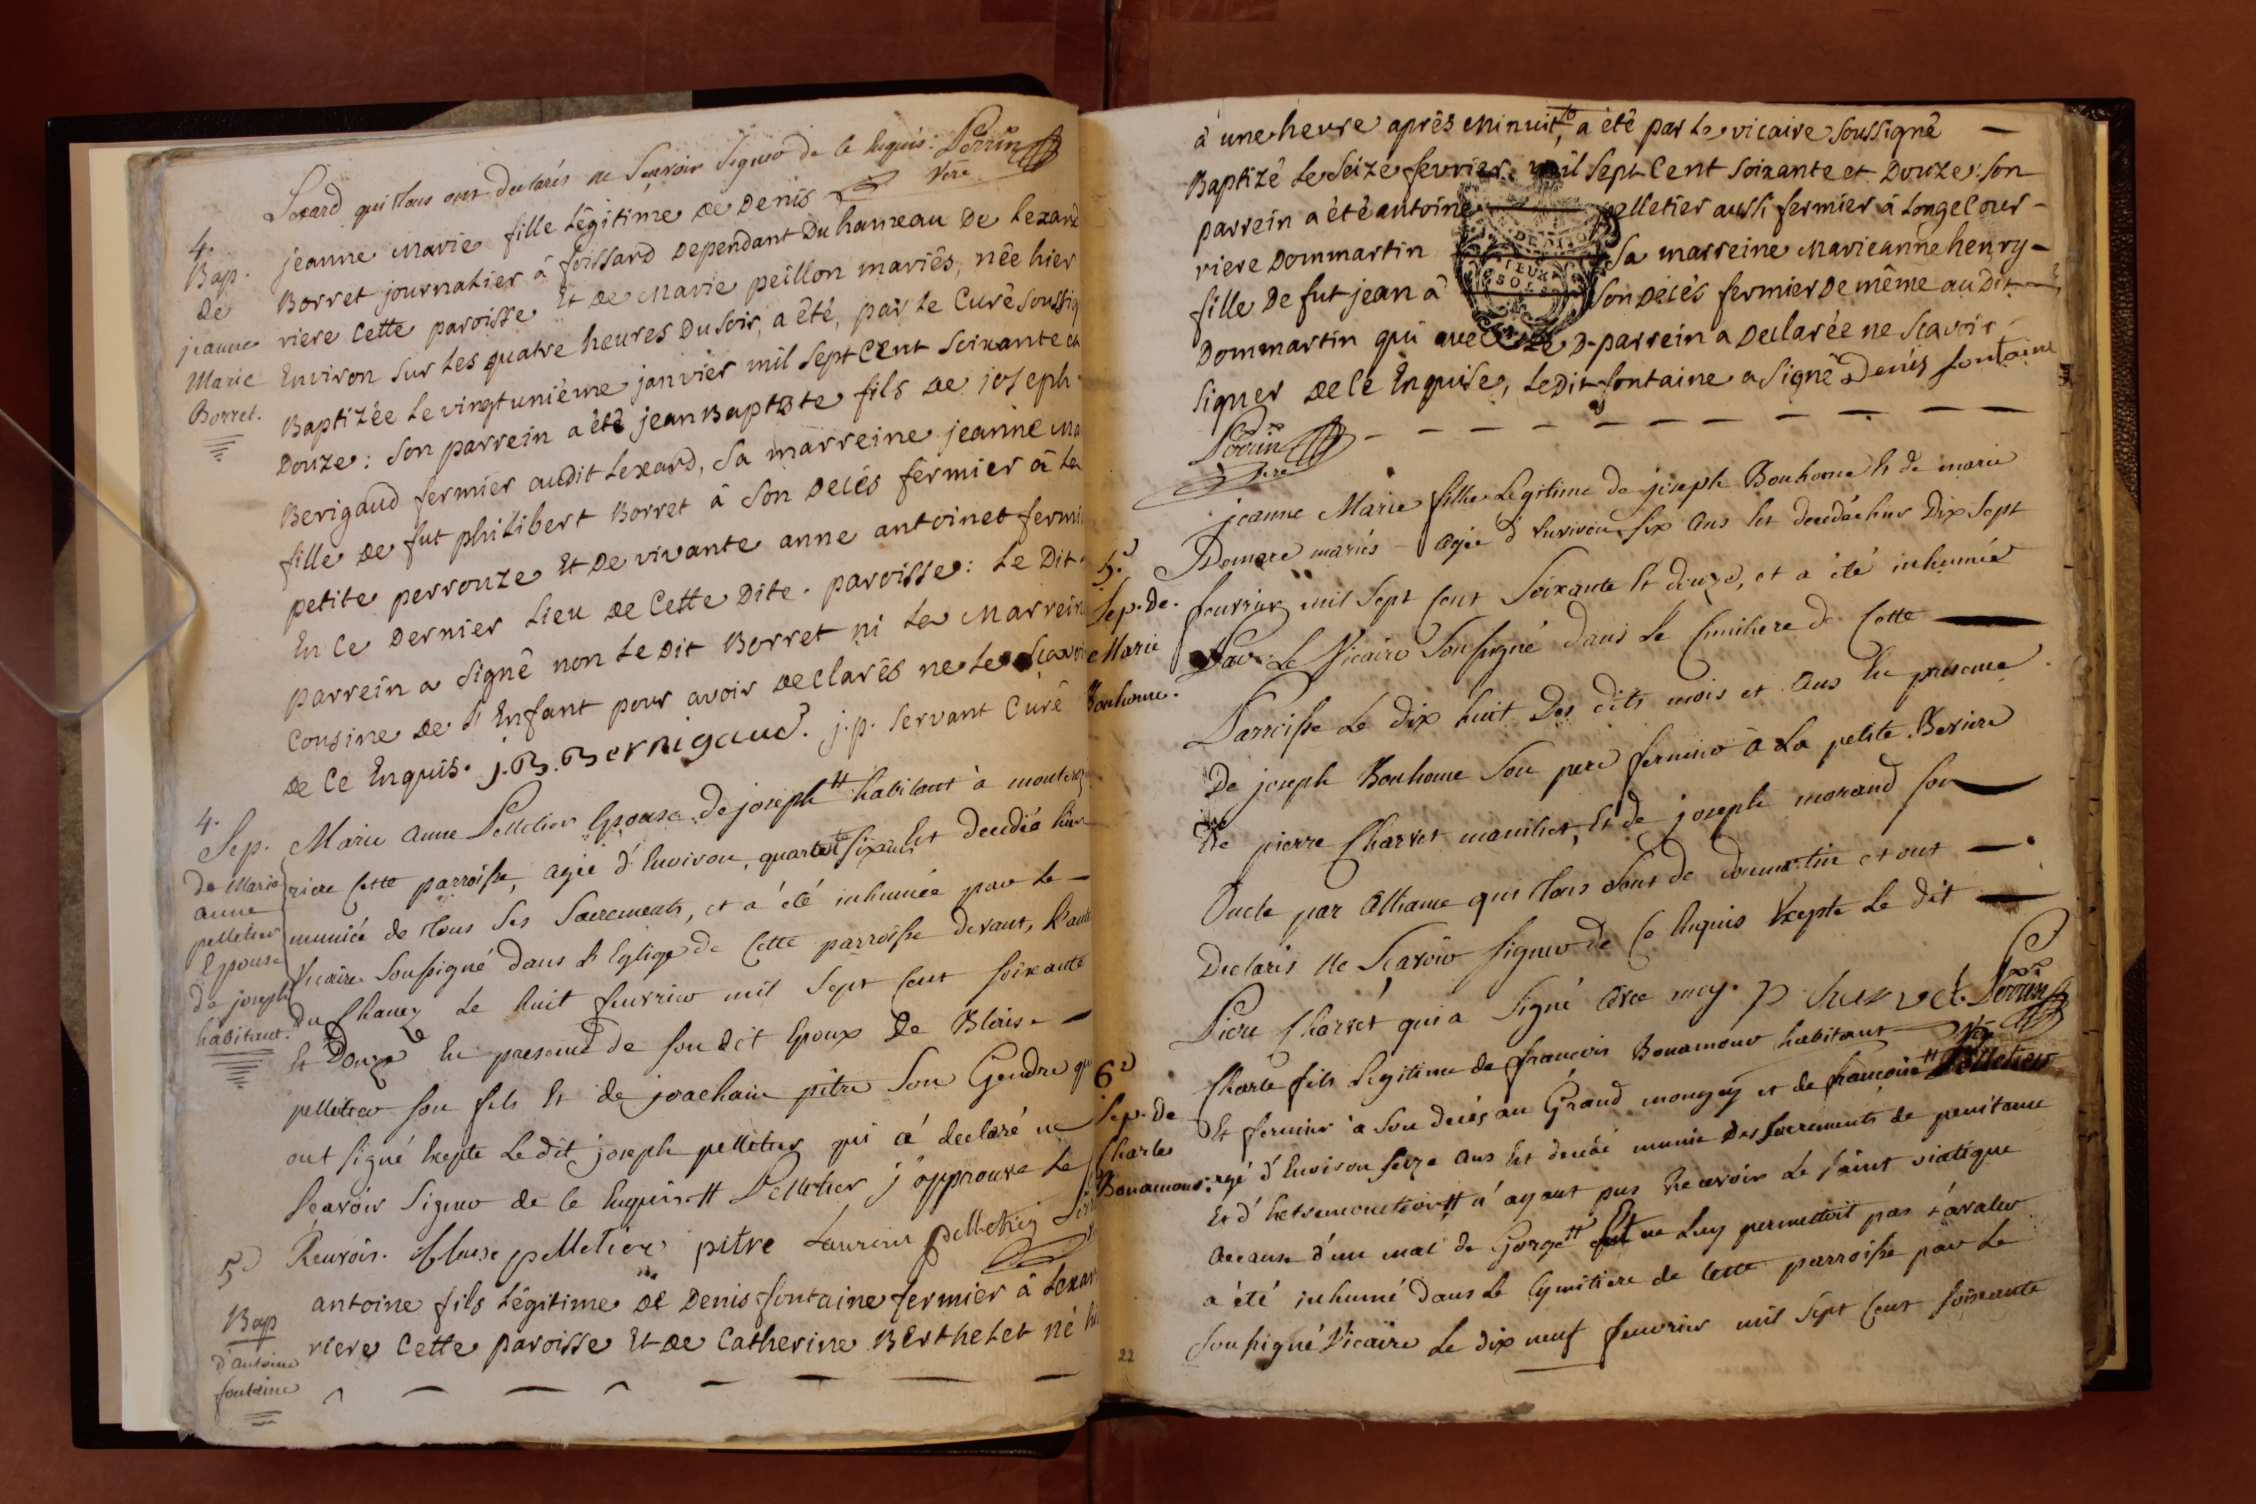 Lexard qui tous ont declarés ne scavoir signer de ce enquis: Perrin
Vire
4.
Bap.
De
jeanne
Marie
Borret.
jeanne Marie fille légitime de Denis
Borret journalier à foissard dependant du hameau de Lexard
riere cette paroisse et de Marie peillon mariés, née hier
Environ sur les quatre heures du soir, a été, par le Curé soussig
Baptizée le vingtunième janvier mil sept cent soixante et
Douze: son parrein a été jean Baptiste fils de joseph
Berigaud fermier audit Lexard, sa marreine jeanne Ma
fille de fut philibert Borret à son décés fermier à la
petite perrouze et de vivante anne antoinet fermi
En ce dernier lieu de cette dite paroisse: le dit
parrein a signé non le dit Borret ni la Marrein
cousine de l'Enfant pour avoir declarés ne le scavoi
de ce Enquis. j. B. Bernigaud. j. p. servant Curé
4.
Sep.
de Marie
anne
pelletier
Epouse
de joseph
habitant.
Marie anne Pelletier Epouse de joseph # habitant à
riere cette parroisse, agée d'Environ quarante six ans est decedée hier
munie de tous ses sacrements, et a été inhumée par le
Vicaire soussigné dans l'Eglise de cette parroisse devant l'autel
du le huit feuvrier mil sept cent soixante
et Douze en presence de son dit Epoux de Blaise
pelletier son fils et de joachain pitre son Gendre qui
ont signé Exepte le dit joseph pelletier qui a declaré ne
scavoir signer de ce Enquis # Pelletier j'approuve le
Renvois. pelletier pitre Laurent pelletier
5
Bap
d'antoine
fontaine
antoine fils légitime de Denis fontaine fermier à Lexar
riere cette paroisse et de Catherine Berthelet né hi
à une heure aprés minuit, a été par le vicaire soussigné
Baptizé le seize fevrier mil sept cent soixante et Douze: son
parrein a été antoine pelletier aussi fermier à Longecour
riere Dommartin sa marreine Marieanne henry
fille de fut jean à son décés fermier de même au dit
Dommartin qui avec le D. parrein a declarée ne scavoir
signer de ce Enquise, le dit fontaine a signé Denis fontaine
Perrin
Vire
5.
Sep. de.
Marie
Bonhome.
jeanne Marie fille Legitime de joseph Bonhome et de marie
mariés agée d'Environ six ans est decedée hier dix sept
feuvrier mil sept cent soixante et douze, et a été inhumée
Par Le Vicaire soussigné dans le Cimitiere de Cette
Parroisse le dix huit des dits mois et ans En presence
De joseph Bonhome son pere fermier à La petite
De pierre Charvet et de joseph morand son
Oncle par alliance qui tous sont de dommartin et ont
Declarés ne scavoir signer de ce enquis Exepte le dit
Pierre Charvet qui a signé avec moy. p charvet. Perrin
Vire
6
Sep. de
Charle
Bonamour.
Charle fils Legitime de francois Bonamour habitant
Et fermier à son decés au Grand et de francoise # Pelletier
agé d'Environ seize ans est decedé munie des sacrements de penitance
Et d'hextremonction # n'ayant pus recevoir le saint viatique
accause d'un mal de Gorge # ne luy permettoit pas d'avaler
a été inhumé dans le Cymitiere de cette parroisse par le
soussigné Vicaire le dix neuf feuvrier mil sept cent soixante
22